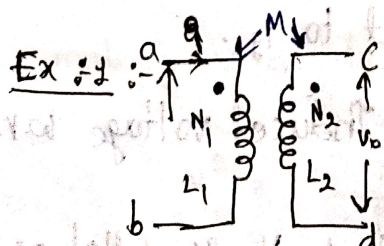 M
Ex :-1 :- a
c
N₁
N₂
V₀
L₁
L₂
b
d